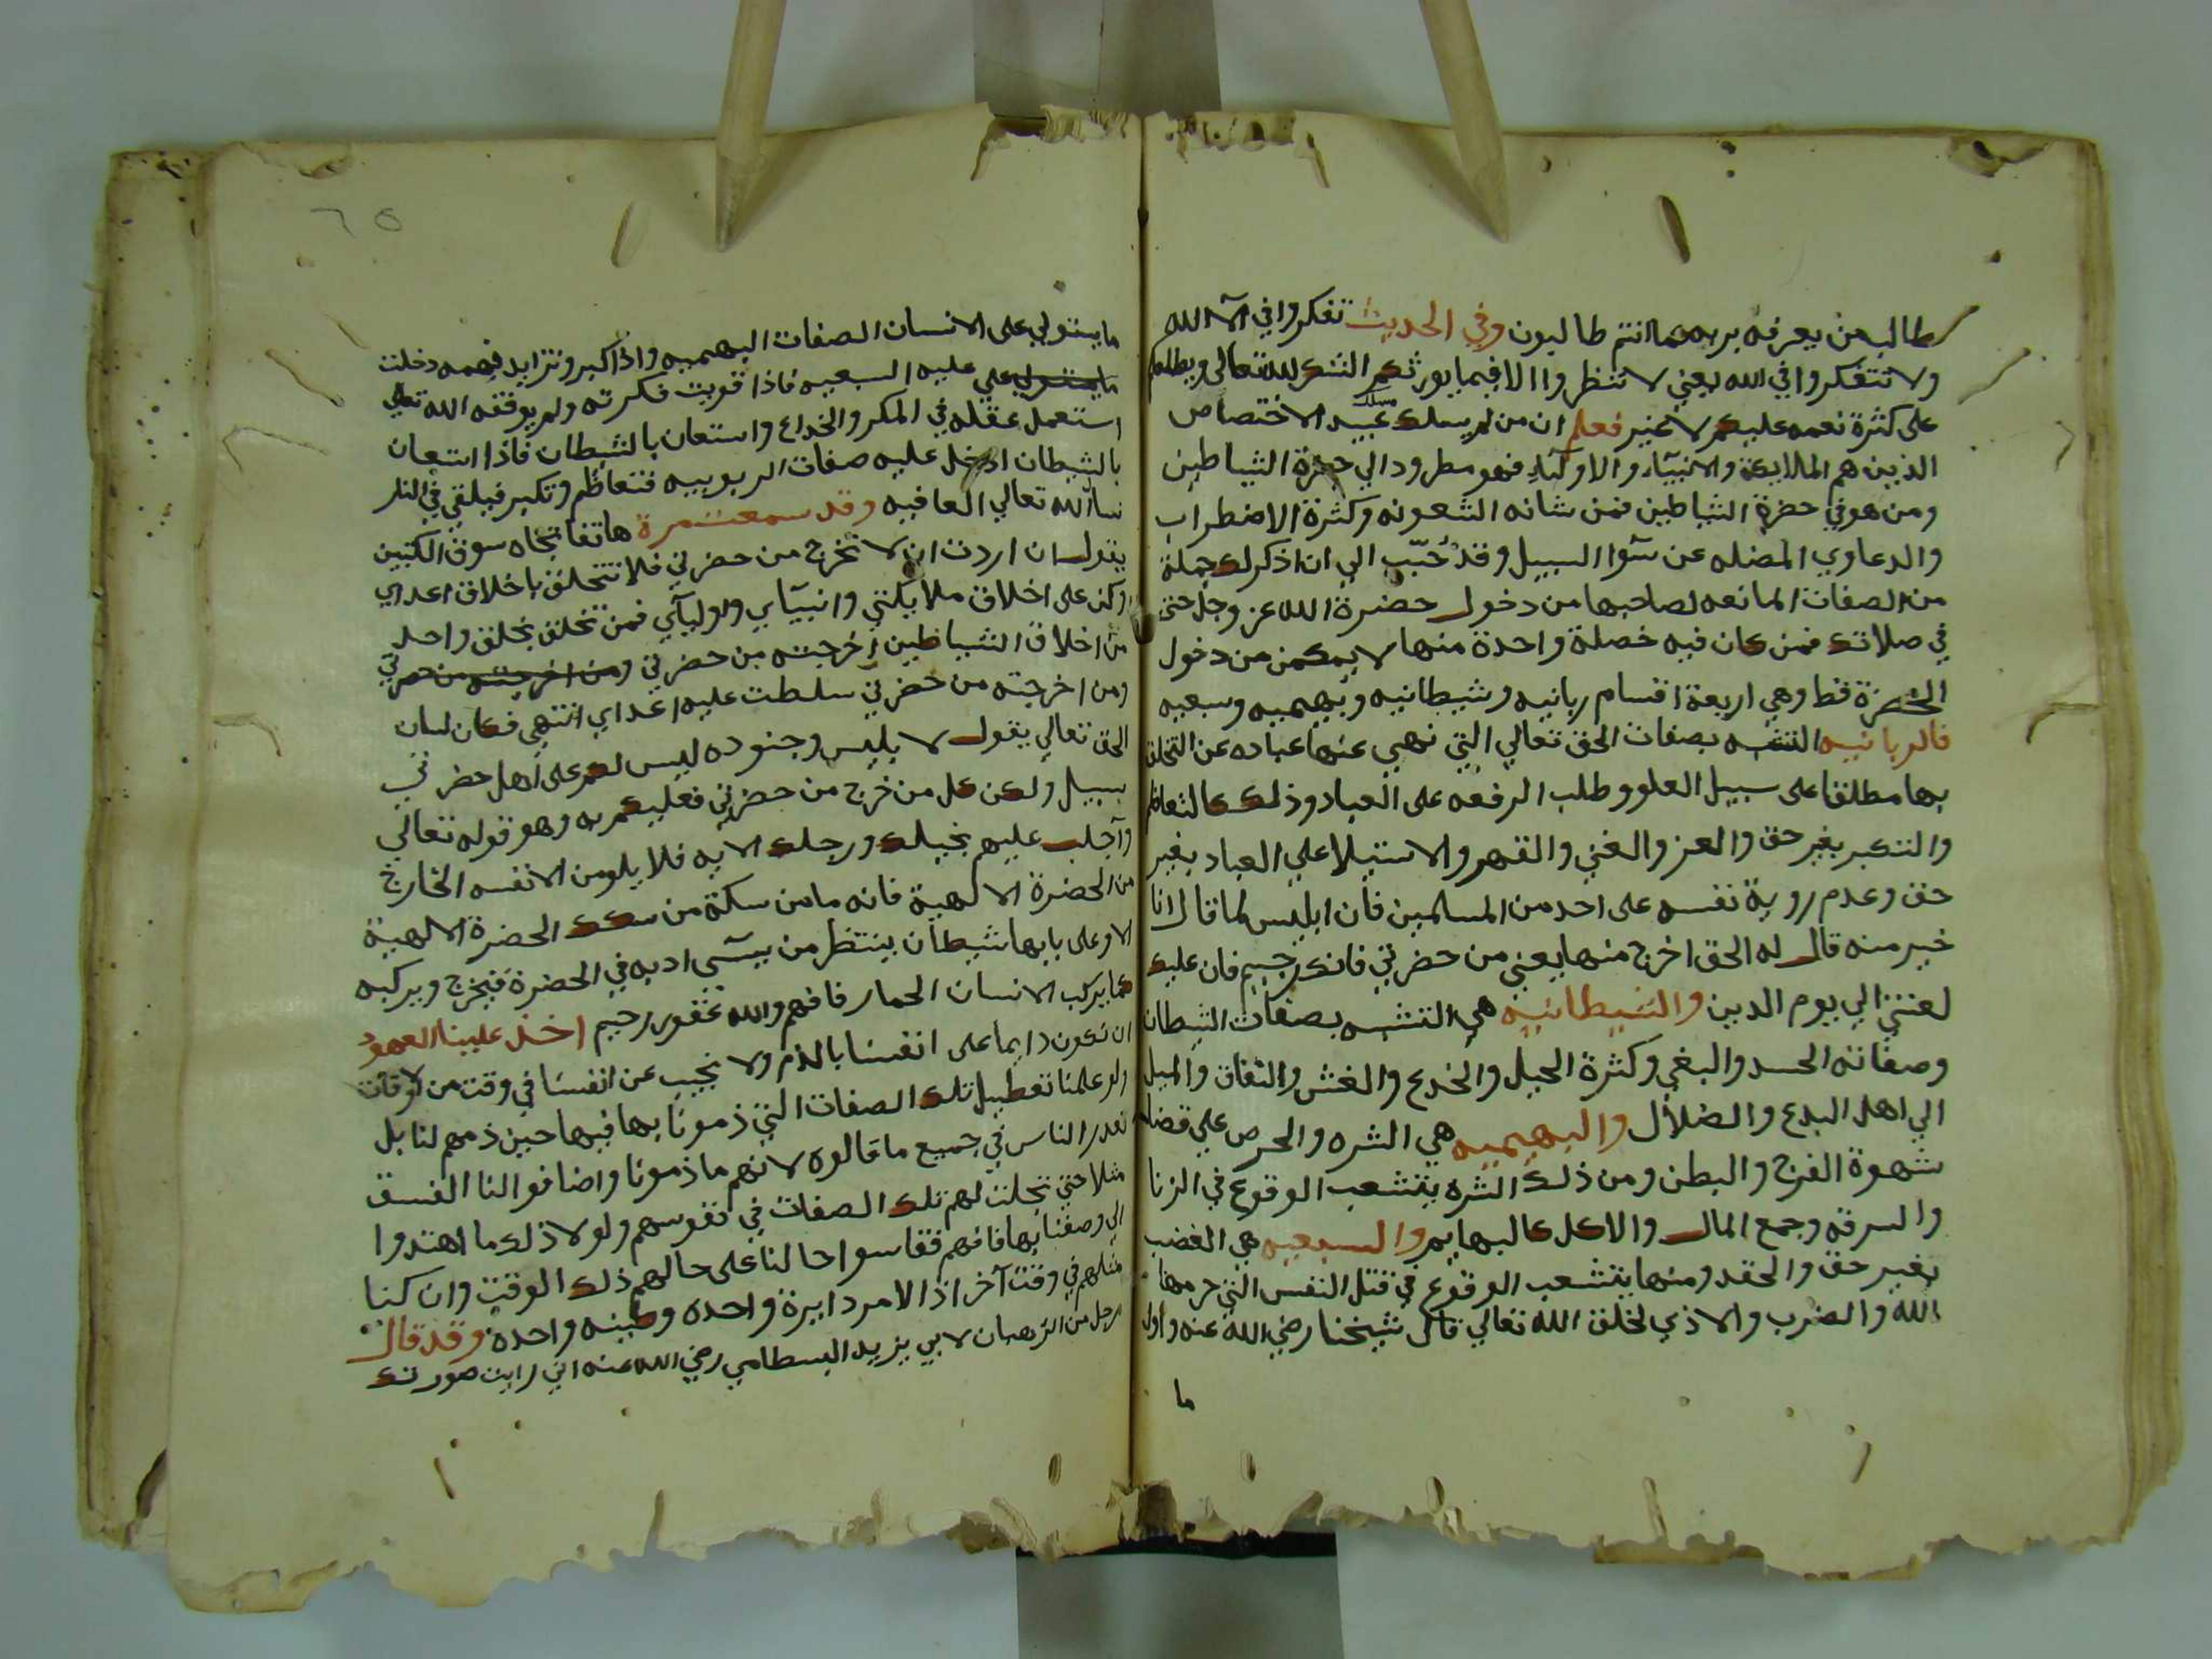 طالب من يعرفه بربه مما انتم طالبون وفي الحديث تفكروا في آلآ الله
ولا تتفكروا في الله يعني لا تنظروا الا فيما يورثكم الشكر لله تعالى ويطلعكم
على كثرة نعمه عليكم لا غير فعلم ان من لم يسلك مسلك عبيد الاختصاص
الذين هم الملايكة والانبيآء والاوليآء فهو مطرود الي حضرة الشياطين
ومن هو في حضرة الشياطين فمن شانه الشعونه وكثرة الاضطراب
والدعاوي المضله عن سوا السبيل وقد حبّب الي ان اذكر لك جملة
من الصفات المانعه لصاحبها من دخول حضرة الله عز وجل حتى
في صلاتك فمن كان فيه خصلة واحدة منها لا يمكن من دخول
الحضرة قط وهي اربعة اقسام ربانيه وشيطانيه وبهيميه وسبعيه
فالربانيه التشبه بصفات الحق تعالي التي نهي عنها عباده عن التخلق
بها مطلقا على سبيل العلو وطلب الرفعه على العباد وذلك كالتعاظم
والتكبر بغير حق والعز والغني والقهر والاستيلا علي العباد بغير
حق وعدم روية نفسه على احد من المسلمين فان ابليس لما قال انا
خير منه قال له الحق اخرج منها يعني من حضرتي فانك رجيم فان عليك
لعنتي الي يوم الدين والشيطانيه هي التشبه بصفات الشيطان
وصفاته الحسد والبغي وكثرة الحيل والخدع والغش والنفاق والميل
الي اهل البدع والضلال والبهيميه هي الشره والحرص علي قضا
شهوة الفرج والبطن ومن ذلك الشره يتشعب الوقوع في الزنا
والسرقه وجمع المال والاكل كالبهايم والسبعيه هي الغضب
بغير حق والحقد ومنها يتشعب الوقوع في قتل النفس التي حرمها
الله والضرب والاذي لخلق الله تعالي قال شيخنا رضي الله عنه واول
ما
٦٥
ما يستولي على الانسان الصفات البهيميه واذا كبر وتزايد فهمه دخلت
عليه السبعيه فاذا قويت فكرته ولم يوفقه الله تعالي
استعمل عقله في المكر والخداع واستعان بالشيطان فاذا استعان
بالشيطان ادخل عليه صفات الربوبيه فتعاظم وتكبر فيلقي في النار
نسأل الله تعالي العافيه وقد سمعت مرة هاتفا تجاه سوق الكتبيين
يقول ان اردت ان لا تخرج من حضرتي فلا تتخلق باخلاق اعداي
وكن على اخلاق ملايكتي وانبيآي واوليآي فمن تخلق بخلق واحد
من اخلاق الشياطين اخرجته من حضرتي ومن اخرجته من حضرتي
ومن اخرجته من حضرتي سلطت عليه اعداي انتهي فكان لسان
الحق تعالي يقول لابليس وجنوده ليس لكم على اهل حضرتي
سبيل ولكن كل من خرج من حضرتي فعليكم به وهو قوله تعالي
وآجلب عليهم بخيلك ورجلك الايه فلا يلومن الا نفسه الخارج
من الحضرة الالهية فانه ما من سكة من سكك الحضرة الالهية
الا وعلى بابها شيطان ينتظر من يسيء ادبه في الحضرة فيخرج ويركبه
كما يركب الانسان الحمار فافهم والله غفور رحيم اخذ علينا العهود
ان نكون دايما على انفسنا بالذم ولا نجيب عن انفسنا في وقت من الاوقات
ولو علمنا تعطيل تلك الصفات التي ذمونا بها فيها حين ذمهم لنا بل
نعذر الناس في جميع ما قالوه لانهم ما ذمونا واضافوا لنا الفسق
مثلا حتي تجلت لهم تلك الصفات في نفوسهم ولولا ذلك ما اهتدوا
الي وصفنا بها فافهم فقاسوا حالنا على حالهم ذلك الوقت وان كنا
مثلهم في وقت آخر اذ الامر دايرة واحده وطينه واحده وقد قال
رجل من الرهبان لابي يزيد البسطامي رضي الله عنه اني رايت صورتك